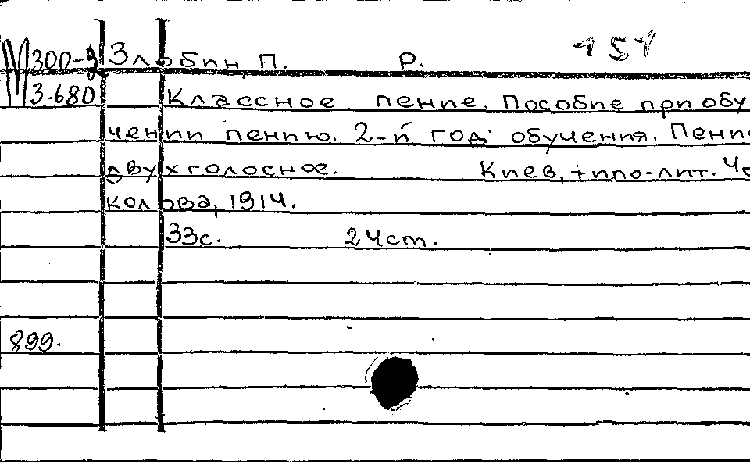 М300-3 Злобин, П. Р. 151
3.680 Классное пение. Пособие при обу
чении пению. 2-й год обучения. Пение
двухголосное. Киев, типо-лит. Чо
колова, 1914.
33с. 24см.
899.